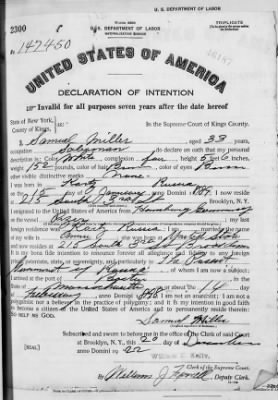 U. S. DEPARTMENT OF LABOR
2300
U. S. DEPARTMENT OF LABOR
NATURALIZATION SERVICE
TRIPLICATE
No. 147450
UNITED STATES OF AMERICA
DECLARATION OF INTENTION
Invalid for all purposes seven years after the date hereof
State of New York,
County of Kings,
In the Supreme Court of Kings County.
I, Samuel Miller aged 33 years,
occupation Salesman do declare on oath that my personal
description is: Color White, complexion fair, height 5 feet inches,
weight 152 pounds, color of hair Brown, color of eyes Brown
other visible distinctive marks None
I was born in Russia
on the day of January, anno Domini 1 I now reside
at 215 South St., Brooklyn, N. Y.
I emigrated to the United States of America from Hamburg Germany
my last
foreign residence was Russia I am married; the name of my
wife is
at 215 South
It is my bona fide intention to renounce forever all allegiance and fidelity to any foreign
prince, potentate, state, or sovereignty, and particularly to The Present
Government of Russia, of whom I am now a subject;
I arrived at the port of
on or about the 14 day
of anno Domini I am not an anarchist; I am not a
polygamist nor a believer in the practice of polygamy; and it is my intention in good faith
to become a citizen of the United States of America and to permanently reside therein:
SO HELP ME GOD.
Samuel Miller
Subscribed and sworn to before me in the office of the Clerk of said Court
at Brooklyn, N. Y., this 20 day of December
anno Domini 1922
[SEAL]
William E. Kelly,
Clerk of the Supreme Court.
By William J. , Deputy Clerk.